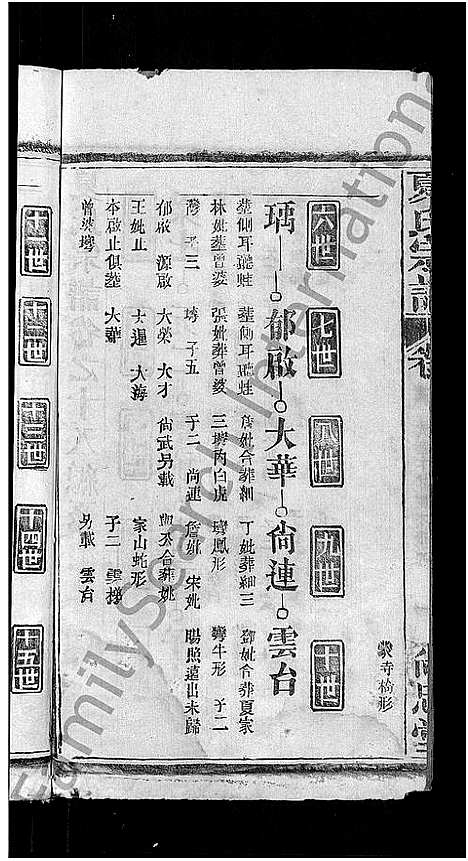 夏氏宗譜 卷
尙忠堂
裴寺橋形
六世 七世 八世 九世 十世
瑀 郁啟 大華 尙連 雲台
葬側耳聽蛙 葬側耳聽蛙 詹妣合葬細 丁妣葬細三 鄧妣合葬夏家
林妣葬曾婆 張妣葬曾婆 三塆內白虎 塆鳳形 灣牛形 子二
灣 子三 塆 子五 子二 尙連 詹妣 宋妣 賜照遠出未歸
郁啟 源啟 大榮 大才 尙武另載 合葬
王妣止 大暹 大海 家山蛇形
本啟止俱葬 大華 子二 雲梯
曾婆灣 另載 雲台
十一世 十二世 十三世 十四世 十五世
FamilySearch International